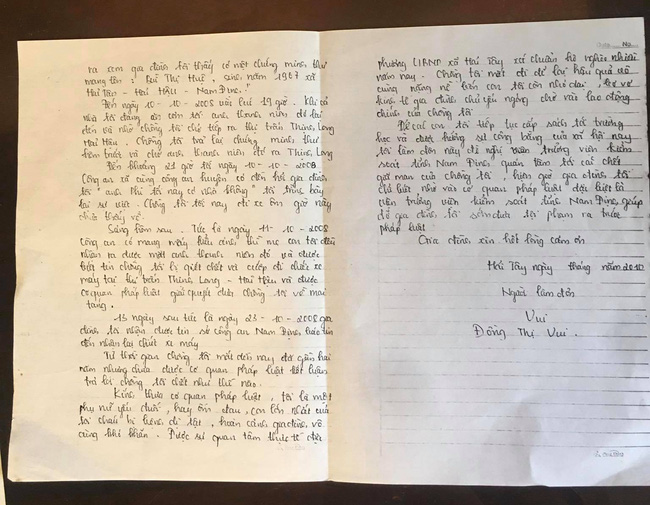 ra xem gia đình tôi thấy có một chứng minh thư
mang tên: Bùi Thị Huế, sinh năm 1967 xã
Hải Tân - Hải Hậu - Nam Định.
Đến ngày 10-10-2008 vào lúc 19 giờ. Khi cả
nhà tôi đang ăn cơm tôi anh thanh niên đó lại
đến và nhờ chồng tôi chở tiếp ra thị trấn Thịnh Long
Hải Hậu. Chồng tôi trả lại chứng minh thư
và chở anh thanh niên đó ra Thịnh Long
Đến khoảng 21 giờ tối ngày 10-10-2008
Công an xã cùng công an huyện có đến hỏi gia đình
tôi "anh Phi tối nay có nhà không" tôi trình bày
lại sự việc. Chồng tôi tối nay đi xe ôm giờ này
chưa thấy về.
Sáng hôm sau. Tức là ngày 11-10-2008
Công an có mang mấy kiểu ảnh thì mẹ con tôi đều
nhận ra được một anh thanh niên đó và được
biết tin chồng tôi bị giết chết và cướp đi chiếc xe
máy tại thị trấn Thịnh Long - Hải Hậu và được
cơ quan pháp luật giải quyết đưa chồng tôi về mai
táng.
13 ngày sau tức là ngày 23-10-2008 gia
đình tôi nhận được tin sở công an Nam Định báo tin
đến nhận lại chiếc xe máy.
Từ thời gian chồng tôi mất đến nay đã gần hai
năm nhưng chưa được cơ quan pháp luật kết luận
trả lời chồng tôi chết như thế nào.
Kính thưa cơ quan pháp luật, tôi là một
phụ nữ yếu đuối, hay ốm đau, con lớn nhất của
tôi cháu bị liệng dị tật, hoàn cảnh gia đình vô
cùng khó khăn. Được sự quan tâm thực tế địa
phương UBND xã Hải Tây nghĩ chuẩn hộ nghèo nhiều
năm nay. Chồng tôi mất đi để lại hậu quả vô
cùng nặng nề bốn con tôi còn nhỏ dại, bơ vơ
kinh tế gia đình chủ yếu ngóng chờ vào lao động
chính của chồng tôi
Để các con tôi tiếp tục cắp sách tới trường
học và được hưởng sự công bằng của xã hội nay
tôi làm đơn này đề nghị viện trưởng viện kiểm
soát tỉnh Nam Định, quan tâm tới cái chết
oan của chồng tôi, hiện giờ gia đình tôi
chỉ biết nhờ vào cơ quan pháp luật đặc biệt là
viện trưởng viện kiểm soát tỉnh Nam Định giúp
đỡ gia đình tôi sớm đưa tội phạm ra trước
pháp luật.
Gia đình xin hết lòng cảm ơn
Hải Tây ngày tháng năm 2010
Người làm đơn
Vui
Đồng Thị Vui.